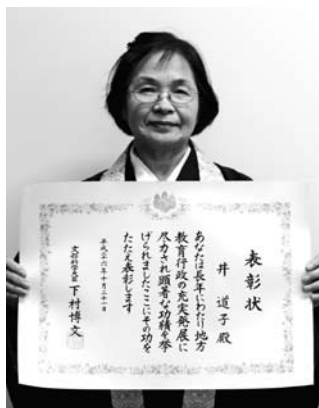 表彰状
井 道子 殿
あなたは長年にわたり地方
教育行政の充実発展に
尽力され顕著な功績を挙
げられましたここにその功を
たたえ表彰します
平成二十六年十月二十一日
文部科学大臣 下村博文